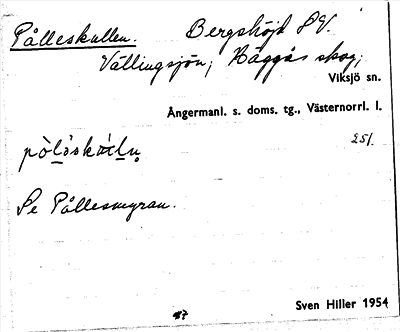 Pålleskullen. Bergshöjd SV.
Vällingsjön, Häggås skog,
Viksjö sn.
Ångermanl. s. doms. tg., Västernorrl. l.
251.
Se Pållesmyran.
Sven Hiller 1954